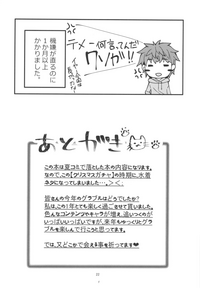 テメー何言ってんだ
クソが!!
機嫌が直るのに
1か月以上
かかりました。
あとがき
この本は夏コミで落とした本の内容になります。
なので、この【クリスマスガチャ】の時期に、水着
ネタになってしまいました...＞＜；
皆さんの今年のグラブルはどうでしたか？
私は、この1年とても楽しく過ごせて貰いました。
色んなコンテンツやキャラが増え、追いつくのが
いっぱいいっぱいですが、来年もゆっくりとグラ
ブルを楽しんで行こうと思ってます。
では、又どこかで会える事を祈ってます♥